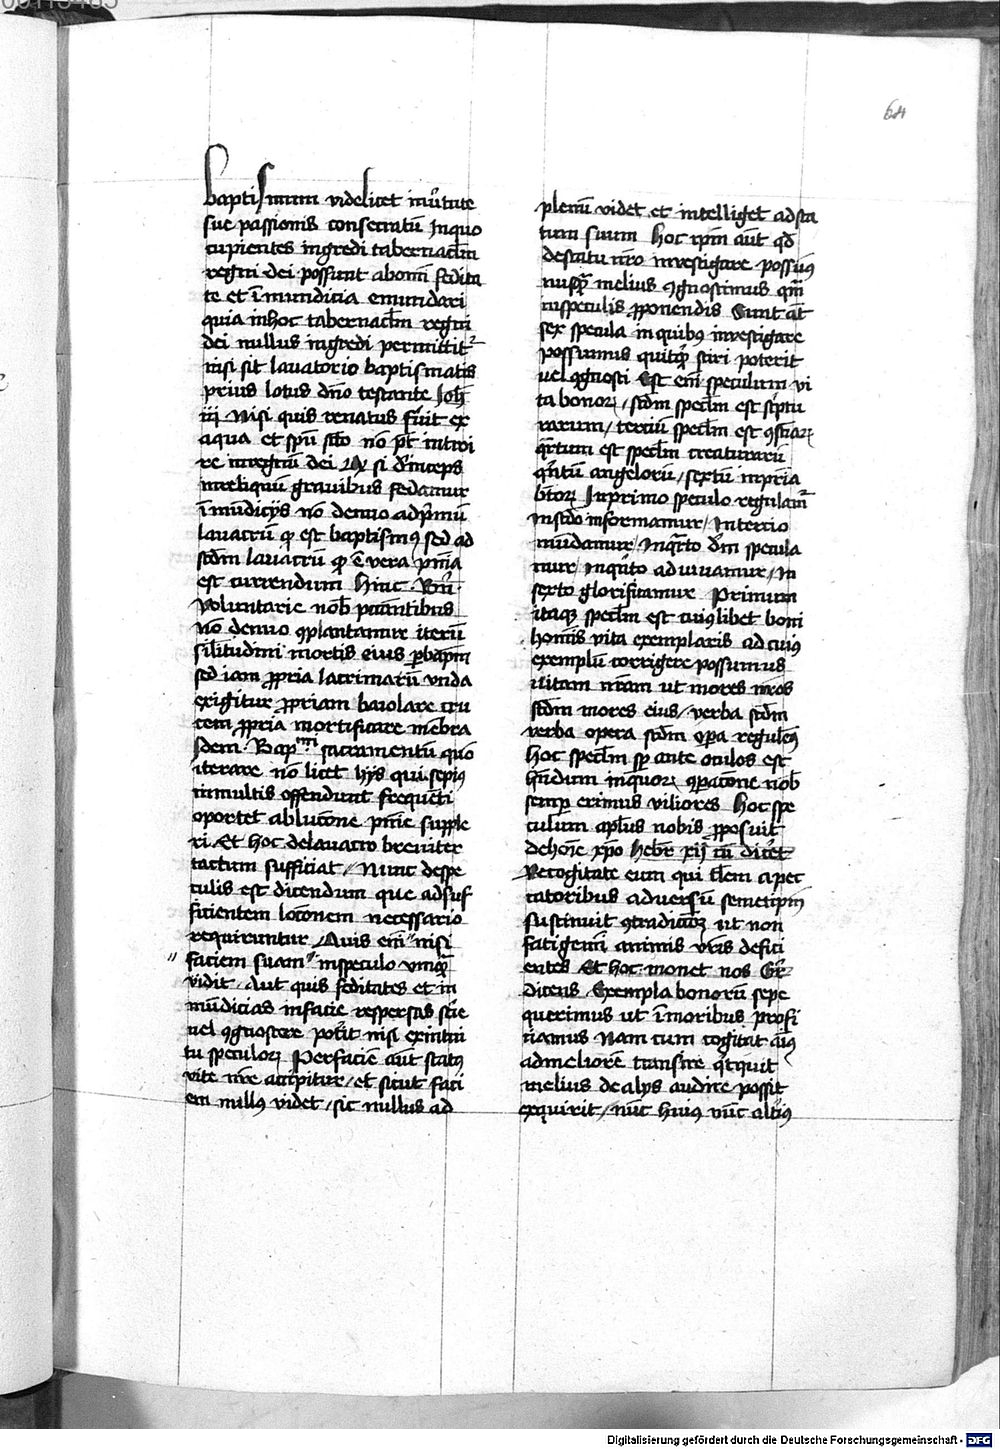 64
baptismum videlicet in v̾tute
sue passionis consecratū In quo
cupientes ingredi tabernacl̄m
regni dei possunt ab om̄i fedita
te et īmundicia emundari
quia in hoc tabernacl̄m regni
dei nullus ingredi permittit᷑
nisi sit lauatorio baptismatis
prius lotus dn̄o testante Joh̄
iij Nisi quis renatus fu̾it ex
aqua et spū scō nō pt̄ introi
re in regnū dei Qr̄ si deinceps
in reliquū grauibus fedamur
īmūdicijs nō denuo ad pⁱmū
lauacrū qd̄ est baptismꝰ sed ad
scd̄m lauacrū qd̄ ē vera pn̄ia
est currendum hinc Bn̄
voluntarie nob̄ peccantibus
nō denuo ꝯplantamur iterū
sil̄itudini mortis eius ꝑ bapm̄
sed iam ꝓpria lacrimarū vnda
exigitur ꝓpriam baiolare cru
cem ꝓpria mortificare mēbra
Idem Bapᵐᵐ sacramentū quō
iterare nō licet hijs qui sepiꝰ
in multis offendunt frequēti
oportet ablucōne pn̄ie supple
ri Et hoc de lauacro breuiter
tactum sufficiat // Nunc de spe
culis est dicendum que ad suf
ficientem locōnem necessario
requiruntur /Quis em̄ // nisi
// faciem suam // in speculo vmqᷓ
vidit / Aut quis feditates et in
mūdicias in facie respersas scīe
uel ꝯgnoscere pot̾it nisi ex intui
tu speculoꝝ Per faciē aūt statꝰ
vite nr̄e accipitur / et sicut faci
em nullꝰ videt / sic nullus ad
plenū videt et intelliget ad sta
tum suum Hoc ip̄m aūt qd̄
de statu nr̄o inuestigare possumꝰ
nusqᷓ melius ꝯgnoscimus qm̄
in speculis ꝓponendis Sunt at̄
sex specula in quibꝰ inuestigare
possumus quitqᷓ sciri poterit
uel ꝯgnosci Est em̄ speculum vi
ta bonoꝝ / scd̄m specl̄m est sc̾ptu
rarum / terciū specl̄m est ꝯsciaꝝ
qᷓrtum est specl̄m creaturarū
qⁱntū angelorū / sextū in pr̄ia
btōꝝ In primo speculo regulam᷑
In scd̄o informamur / In tercio
mūdamur / In qᷓrto dm̄ specula
mur / In qⁱnto adiuuamur / In
sexto glorificamur Primum
itaqꝫ specl̄m est cuiꝰlibet boni
hōmīs vita exemplaris ad cuiꝰ
exemplū corrigere possumus
vitam nr̄am ut mores nr̄os
scd̄m mores eius / verba scd̄m
verba opera scd̄m oꝑa regulemꝰ
hoc specl̄m sp̄ ante oculos est
hn̄dum in quoꝝ ꝯꝑacōne nob̄
semꝑ erimus viliores Hoc spe
culum apl̄us nobis ꝓposuit
de hoīe xp̄o hebr̄ xij cū dic̾et
Recogitate eum qui tl̄em a pec
catoribus aduersū semetip̄m
sustinuit ꝯtradictōꝫ ut non
fatigem̄ī animis vr̄is defici
entes Et hoc monet nos Gr̄
dicens Exempla bonorū sepe
querimus ut ī moribus profi
ciamus Nam cum cogitat aīꝰ
ad meliorē transire qⁱcquit
melius de alijs audire possit
exquirit / nūc huiꝰ nūc alt̾iꝰ
Digitalisierung gefördert durch die Deutsche Forschungsgemeinschaft - DFG